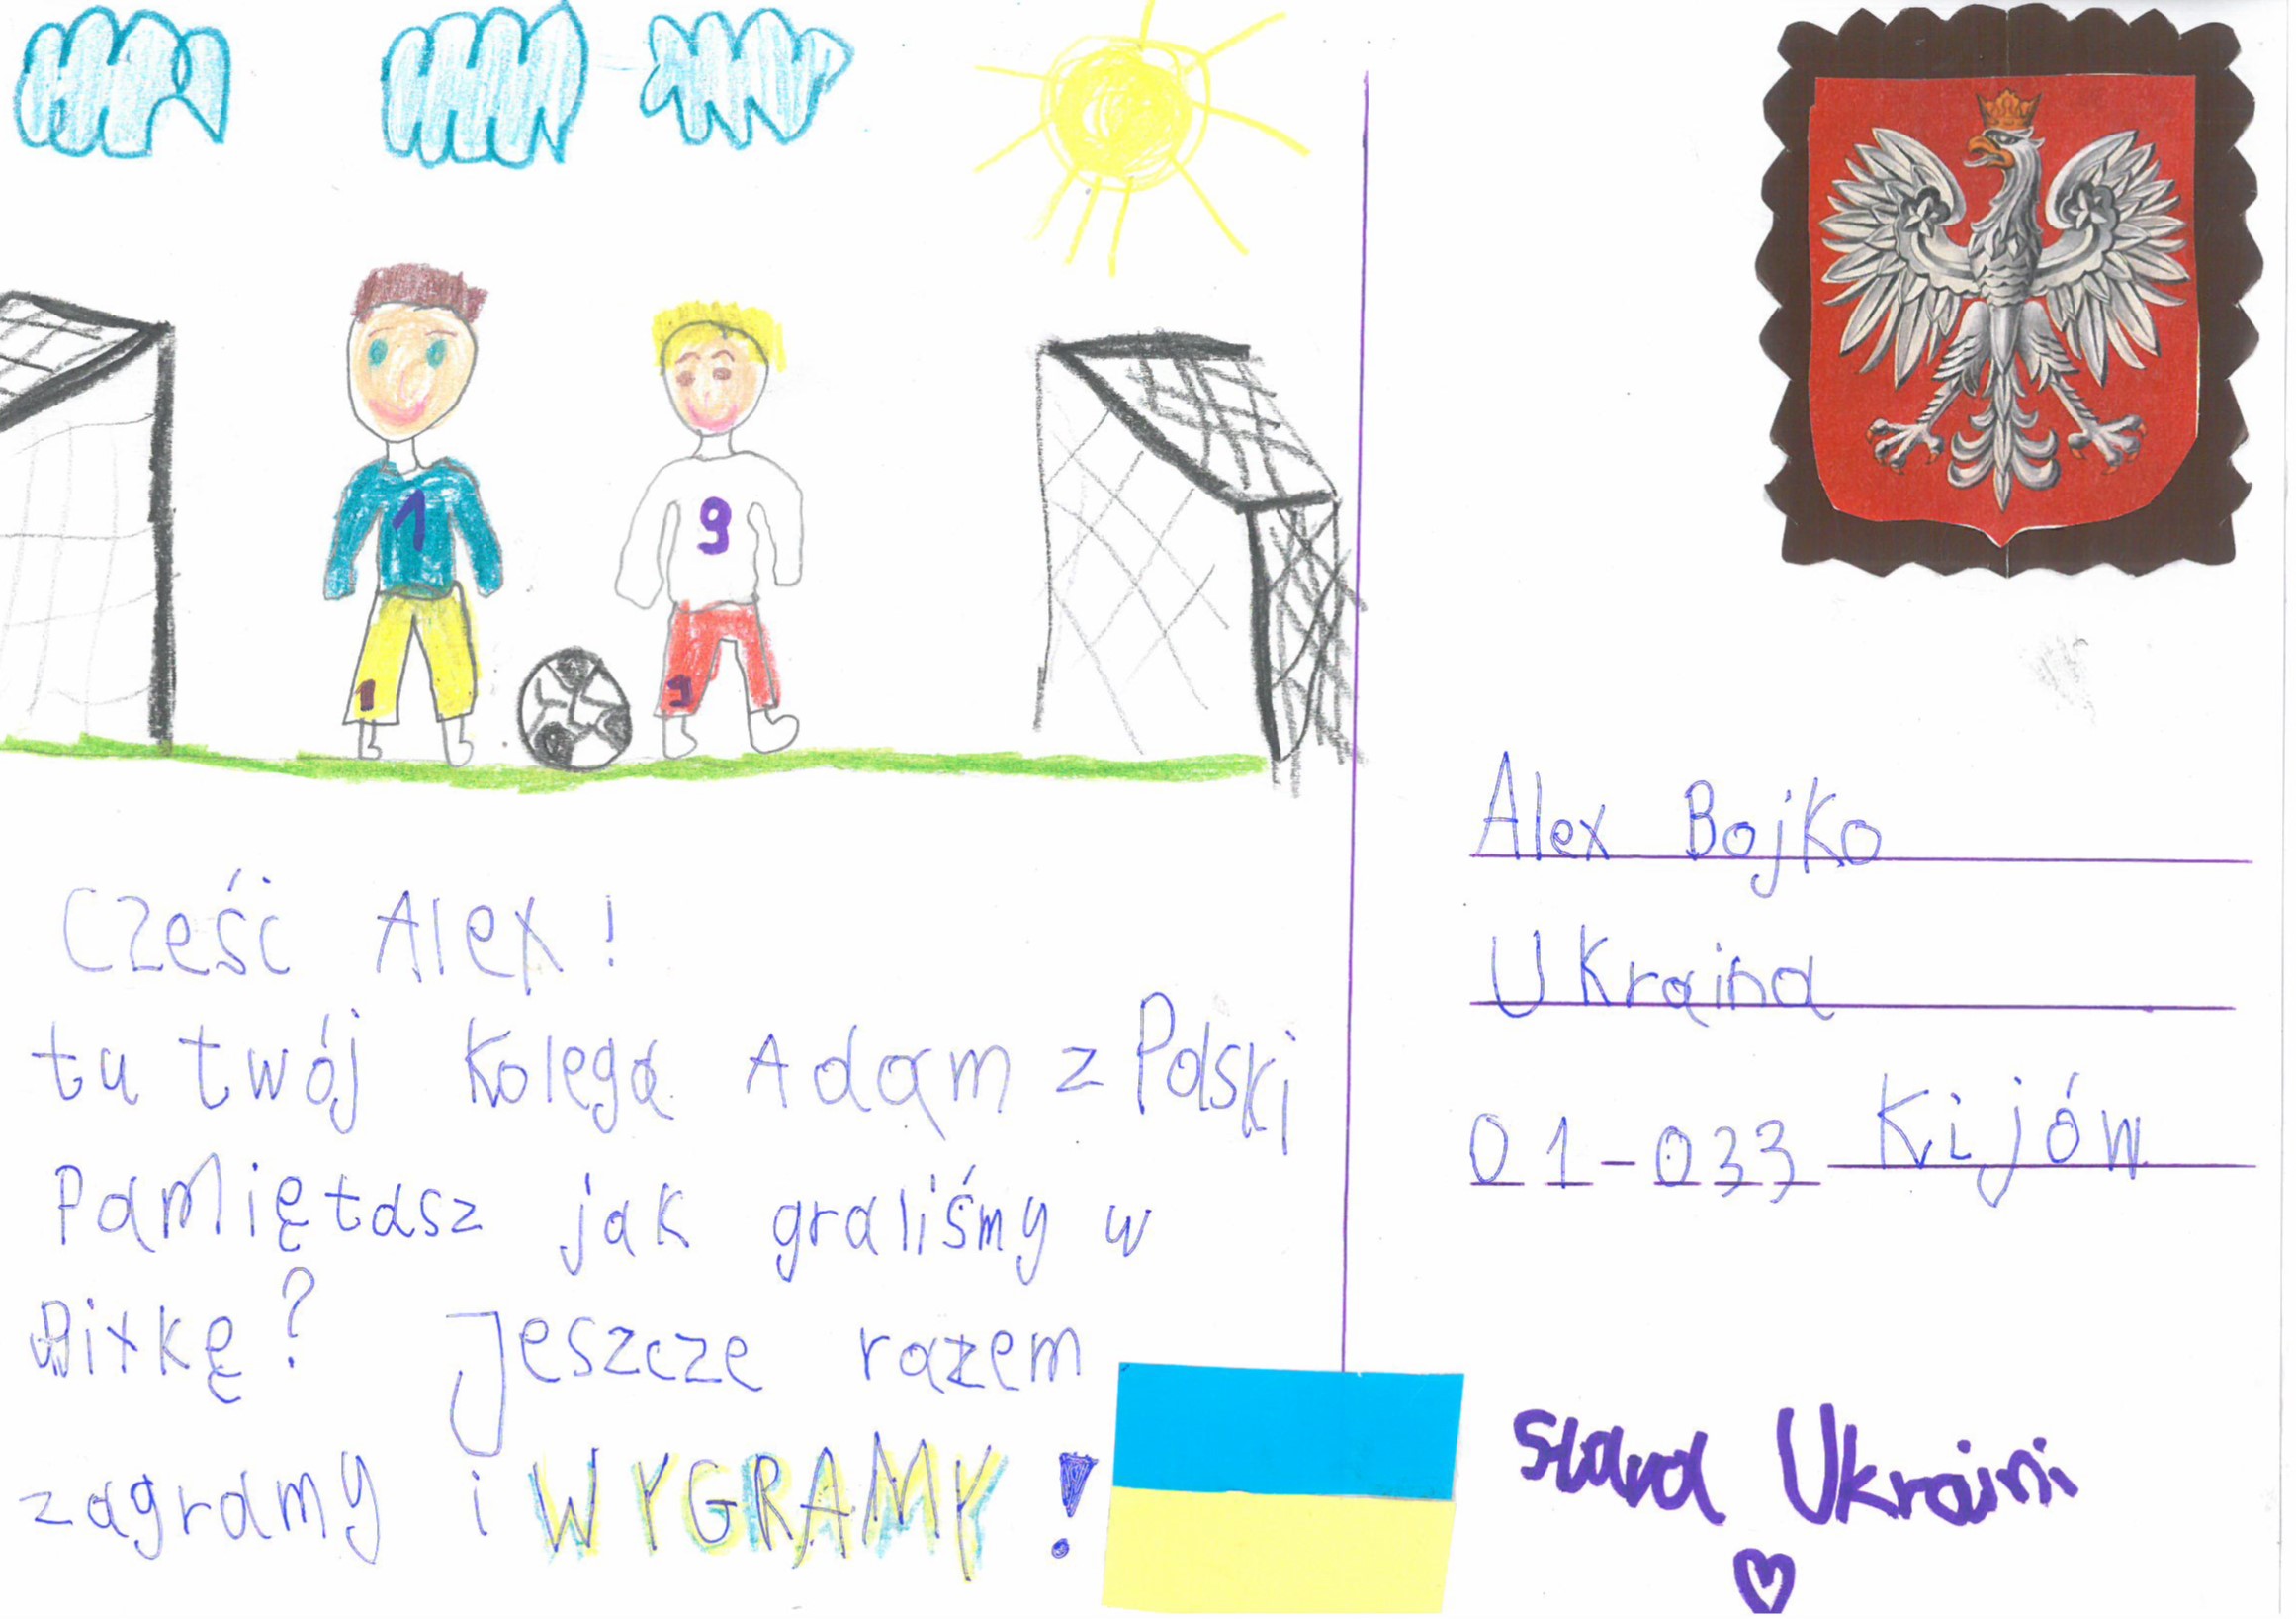 1
9
1
9
Cześć Alex!
tu twój kolega Adam z Polski
Pamiętasz jak graliśmy w
Piłkę? Jeszcze razem
zagramy i WYGRAMY!
Alex Bojko
Ukraina
01-033 Kijów
slava Ukraini